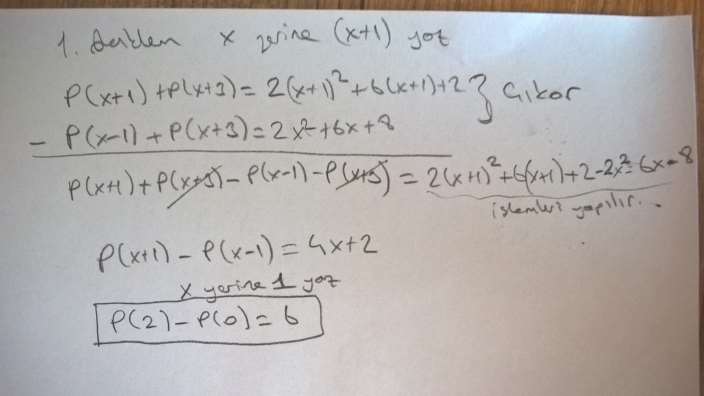 1. denklem x yerine (x+1) yaz
P(x+1) + P(x+3) = 2(x+1)² + 6(x+1) + 2 } Çıkar
- P(x-1) + P(x+3) = 2x² + 6x + 8
P(x+1) + P(x+3) - P(x-1) - P(x+3) = 2(x+1)² + 6(x+1) + 2 - 2x² - 6x - 8
işlemleri yapılır...
P(x+1) - P(x-1) = 4x + 2
x yerine 1 yaz
P(2) - P(0) = 6